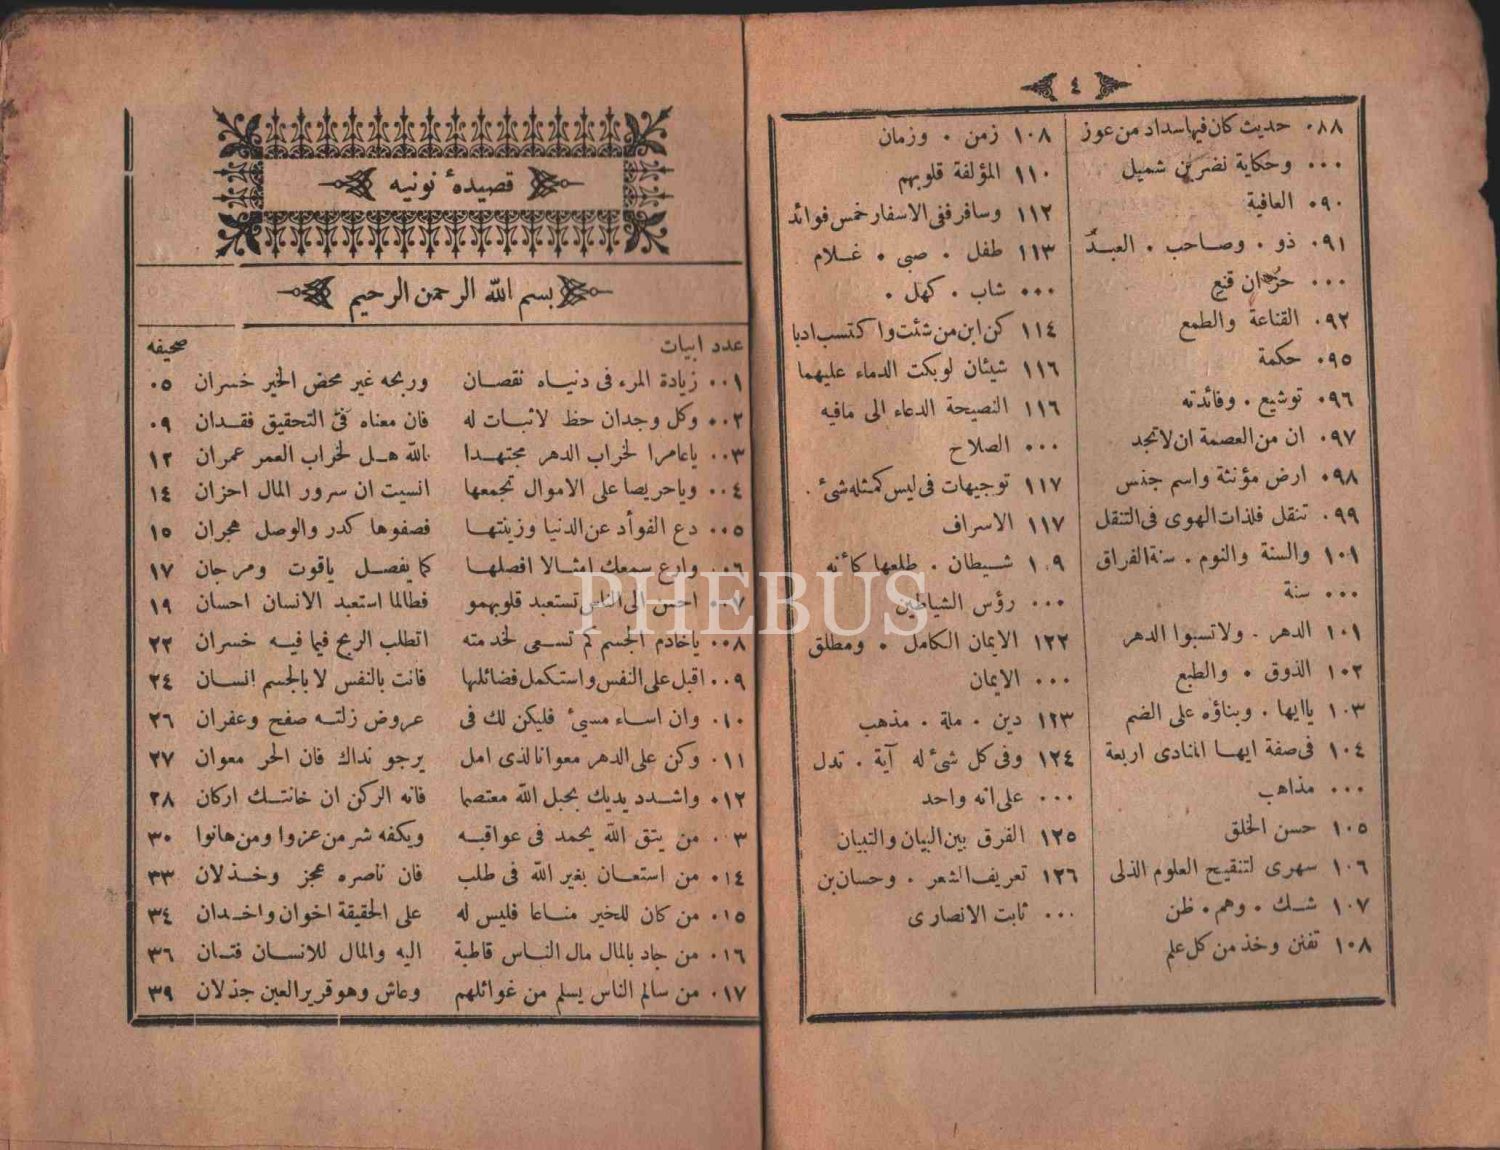 ٤
٠٨٨ حديث كان فيها سداد من عوز
٠٠٠ وحكاية نضر بن شميل
٠٩٠ العافية
٠٩١ ذو ٠ وصاحب ٠ العبد
٠٠٠ حر ان قنع
٠٩٢ القناعة والطمع
٠٩٥ حكمة
٠٩٦ توشيع ٠ وفائدته
٠٩٧ ان من العصمة ان لا تجد
٠٩٨ ارض مؤنثة واسم جنس
٠٩٩ تنقل فلذات الهوى فى التنقل
١٠١ والسنة والنوم ٠ سنة الفراق
٠٠٠ سنة
١٠١ الدهر ٠ ولا تسبوا الدهر
١٠٢ الذوق ٠ والطبع
١٠٣ يا ايها ٠ وبناؤه على الضم
١٠٤ فى صفة ايها المنادى اربعة
٠٠٠ مذاهب
١٠٥ حسن الخلق
١٠٦ سهرى لتنقيح العلوم الذلى
١٠٧ شك ٠ وهم ٠ ظن
١٠٨ تفنن وخذ من كل علم
١٠٨ زمن ٠ وزمان
١١٠ المؤلفة قلوبهم
١١٢ وسافر ففى الاسفار خمس فوائد
١١٣ طفل ٠ صبى ٠ غلام
٠٠٠ شاب ٠ كهل ٠
١١٤ كن ابن من شئت واكتسب ادبا
١١٦ شيئان لو بكت الدماء عليهما
١١٦ النصيحة الدعاء الى مافيه
٠٠٠ الصلاح
١١٧ توجيهات فى ليس كمثله شىء ٠
١١٧ الاسراف
١٠٩ شيطان ٠ طلعها كأنه
٠٠٠ رؤس الشياطين
١٢٢ الايمان الكامل ٠ ومطلق
٠٠٠ الايمان
١٢٣ دين ٠ ملة ٠ مذهب
١٢٤ وفى كل شىء له آية ٠ تدل
٠٠٠ على انه واحد
١٢٥ الفرق بين البيان والتبيان
١٢٦ تعريف الشعر ٠ وحسان بن
٠٠٠ ثابت الانصارى
قصيدهٔ نونيه
بسم الله الرحمن الرحيم
عدد ابيات صحيفه
٠٠١ زيادة المرء فى دنياه نقصان وربحه غير محض الخير خسران ٠٥
٠٠٢ وكل وجدان حظ لا ثبات له فان معناه فى التحقيق فقدان ٠٩
٠٠٣ يا عامرا لخراب الدهر مجتهدا بالله هل لخراب العمر عمران ١٢
٠٠٤ ويا حريصا على الاموال تجمعها انسيت ان سرور المال احزان ١٤
٠٠٥ دع الفوأد عن الدنيا وزينتها فصفوها كدر والوصل هجران ١٥
٠٠٦ وارع سمعك امثالا افصلها كما يفصل ياقوت ومرجان ١٧
٠٠٧ احسن الى الناس تستعبد قلوبهمو فطالما استعبد الانسان احسان ١٩
٠٠٨ يا خادم الجسم كم تسعى لخدمته اتطلب الربح فيما فيه خسران ٢٢
٠٠٩ اقبل على النفس واستكمل فضائلها فانت بالنفس لا بالجسم انسان ٢٤
٠١٠ وان اساء مسىء فليكن لك فى عروض زلته صفح وغفران ٢٦
٠١١ وكن على الدهر معوانا لذى امل يرجو نداك فان الحر معوان ٢٧
٠١٢ واشدد يديك بحبل الله معتصما فانه الركن ان خانتك اركان ٢٨
٠٣ من يتق الله يحمد فى عواقبه ويكفه شر من عزوا ومن هانوا ٣٠
٠١٤ من استعان بغير الله فى طلب فان ناصره عجز وخذلان ٣٣
٠١٥ من كان للخير مناعا فليس له على الحقيقة اخوان واخدان ٣٤
٠١٦ من جاد بالمال مال الناس قاطبة اليه والمال للانسان فتان ٣٦
٠١٧ من سالم الناس يسلم من غوائلهم وعاش وهو قرير العين جذلان ٣٩
PHEBUS